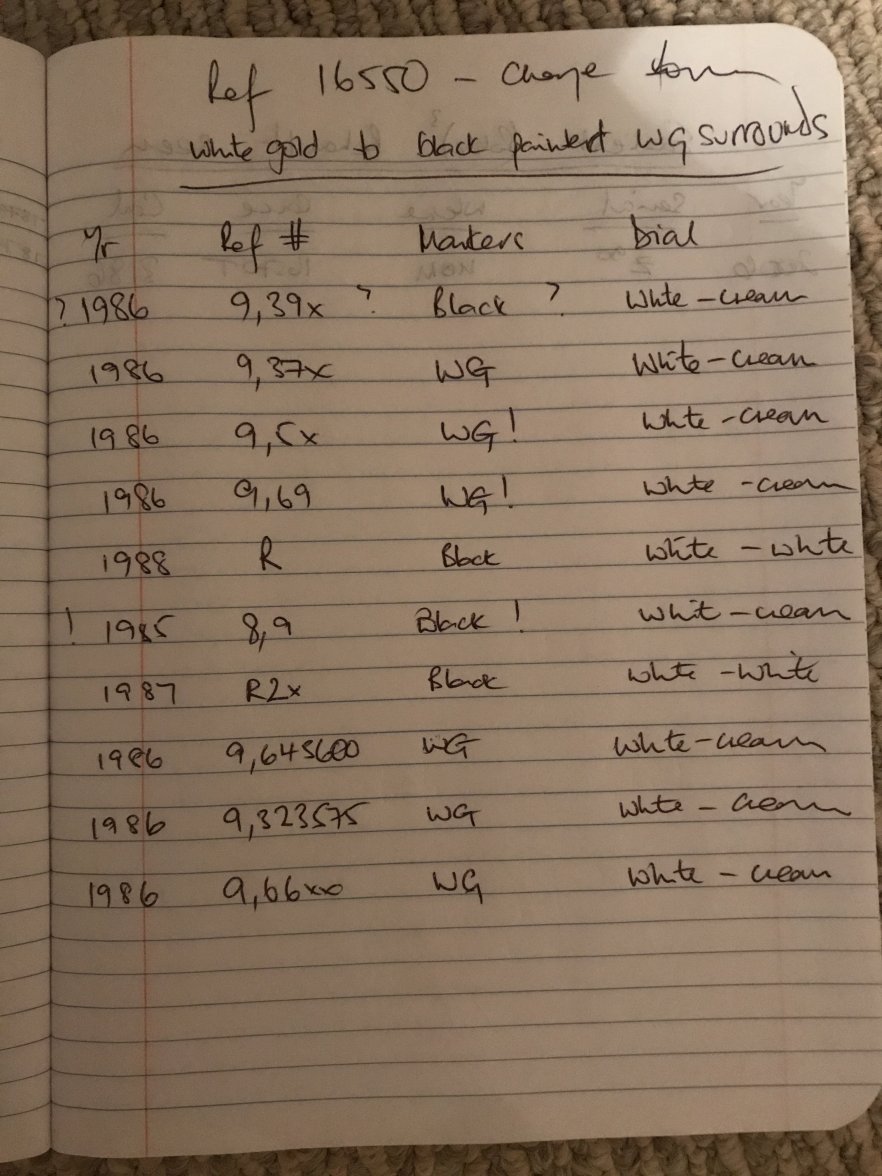 Ref 16550 - Change from
white gold to black painted WG surrounds
Yr Ref # Markers Dial
? 1986 9,39x ? Black ? White - cream
1986 9,37x WG White - cream
1986 9,5x WG! White - cream
1986 9,69 WG! White - cream
1988 R Black White - white
! 1985 8,9 Black ! White - cream
1987 R2x Black White - white
1986 9,645600 WG White - cream
1986 9,323575 WG White - cream
1986 9,66xxx WG White - cream